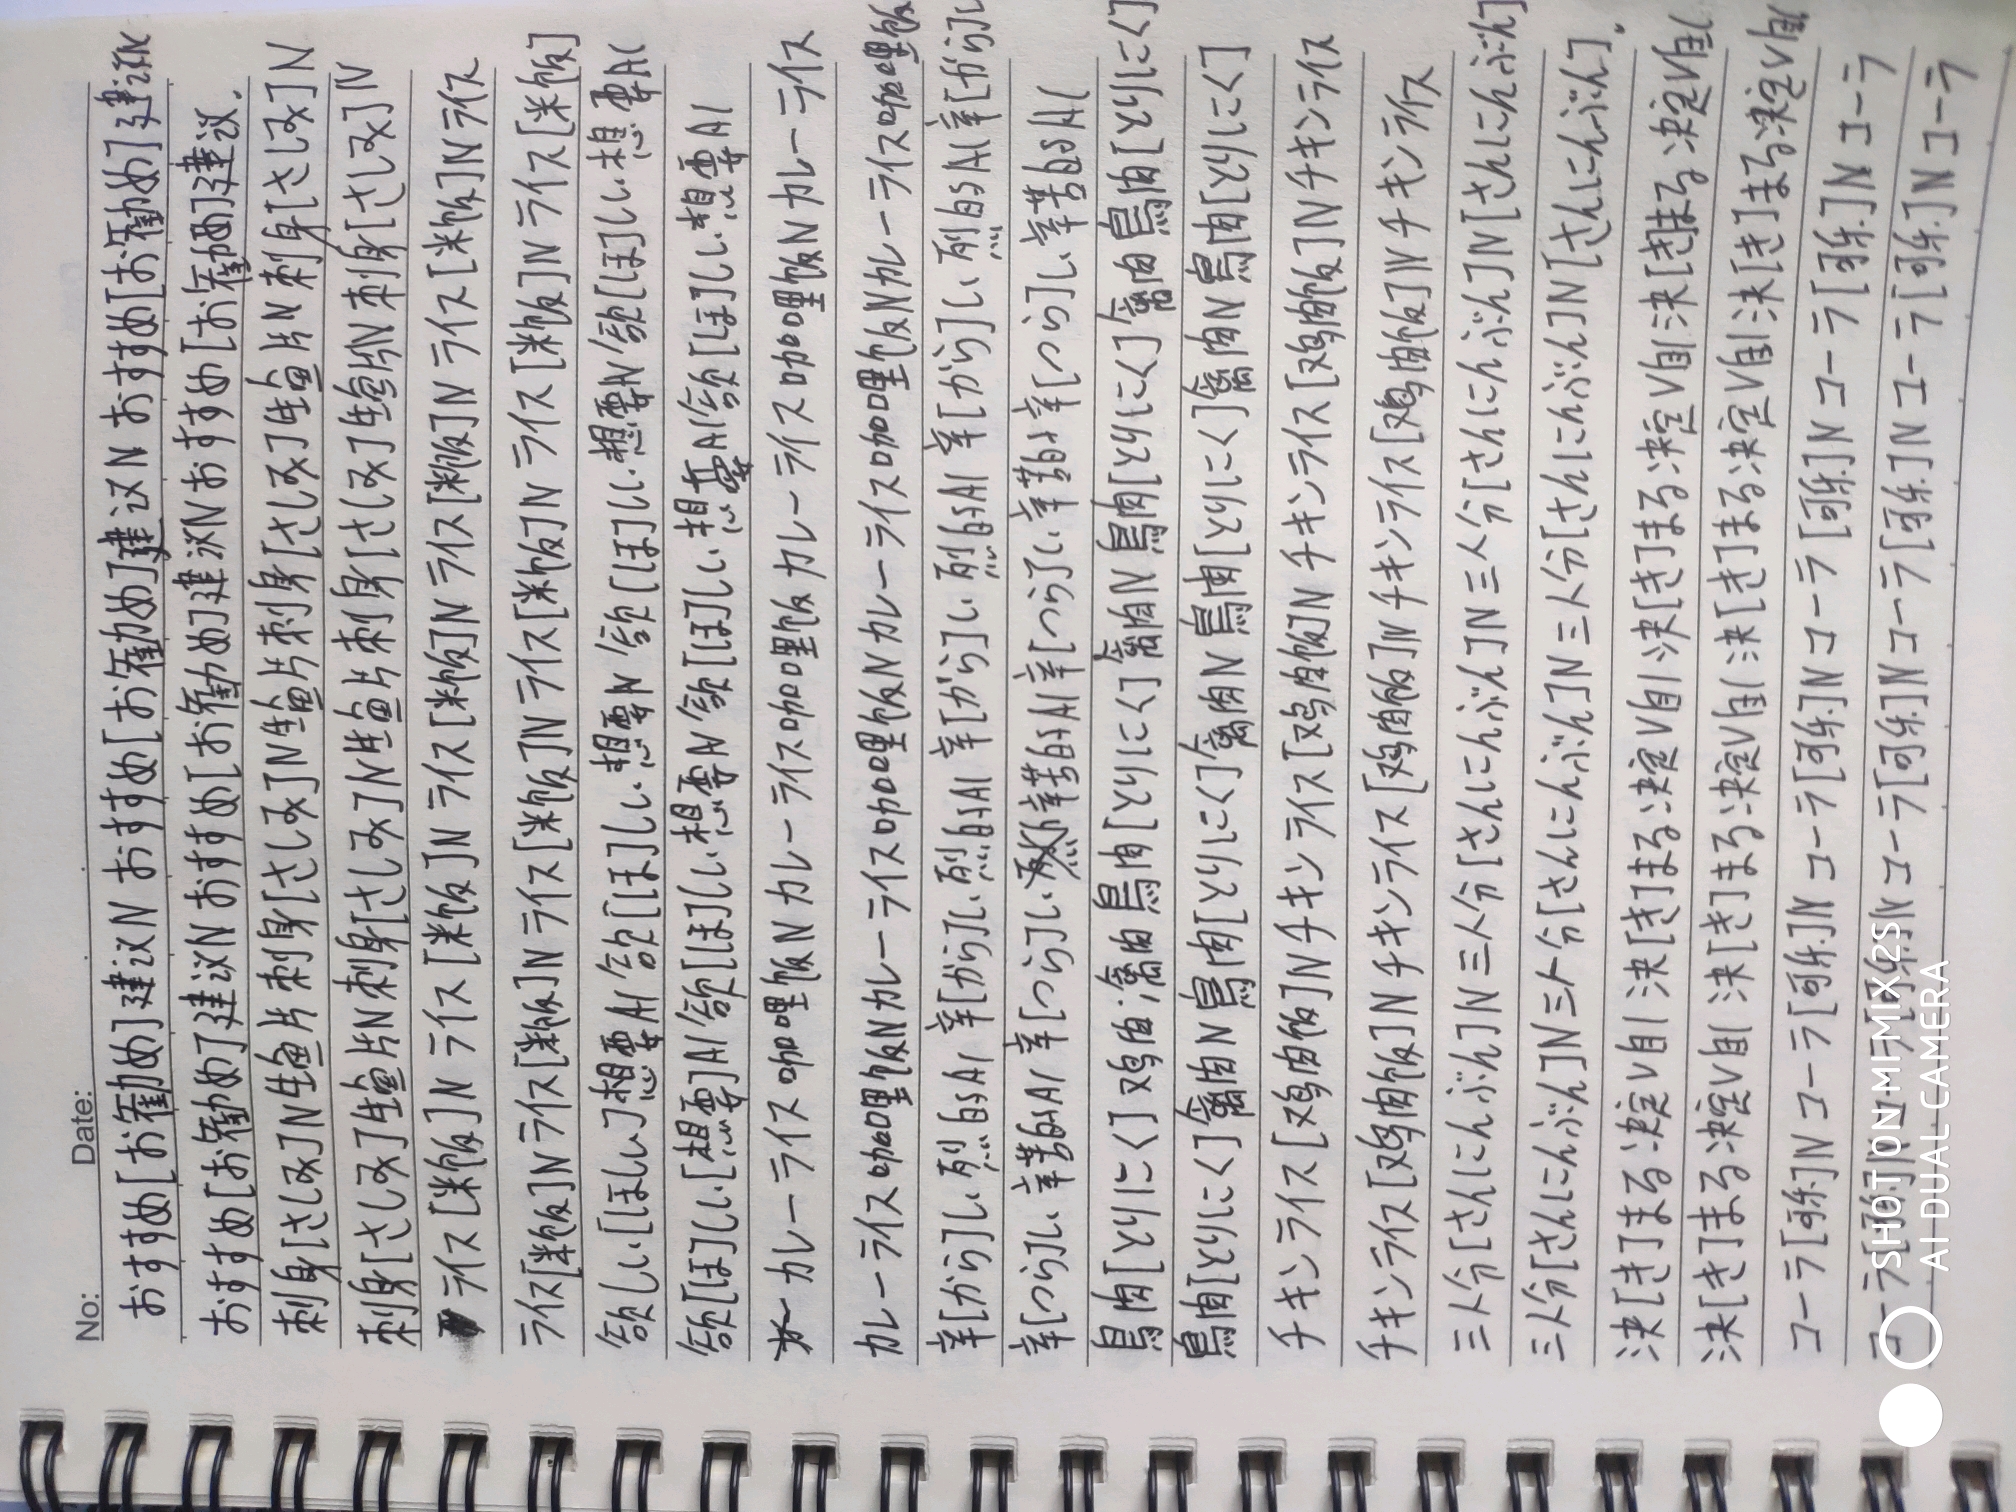 No: Date:
おすすめ[お勧め]建议N おすすめ[お勧め]建议N おすすめ[お勧め]建议N おすすめ[お勧め]建议N
おすすめ[お勧め]建议N おすすめ[お勧め]建议N おすすめ[お勧め]建议.
刺身[さしみ]N生鱼片 刺身[さしみ]N生鱼片 刺身[さしみ]生鱼片N 刺身[さしみ]N
刺身[さしみ]生鱼片N 刺身[さしみ]N生鱼片 刺身[さしみ]生鱼片N 刺身[さしみ]N
ライス[米饭]N ライス[米饭]N ライス[米饭]N ライス[米饭]N ライス[米饭]N ライス
ライス[米饭]N ライス[米饭]N ライス[米饭]N ライス[米饭]N ライス[米饭]N ライス[米饭]
欲しい[ほしい]想要AI 欲[ほ]しい.想要N 欲[ほ]しい.想要N 欲[ほ]しい.想要AI
欲[ほ]しい[想要]AI 欲[ほ]しい想要N 欲[ほ]しい想要AI 欲[ほ]しい.想要AI
カレーライス咖喱饭N カレーライス咖喱饭 カレーライス咖喱饭N カレーライス
カレーライス咖喱饭N カレーライス咖喱饭N カレーライス咖喱饭N カレーライス咖喱饭
辛[から]い烈的AI 辛[から]い.烈的AI 辛[から]い烈的AI 辛[から]い.烈的AI 辛[から]い
辛[つら]い.辛苦的AI 辛[つら]い.辛苦的AI 辛[つら]い.辛苦的 辛[つら]い.辛苦的AI
鳥肉[とりにく]鸡肉;禽肉 鳥肉[とりにく]禽肉N 鳥肉[とりにく]禽肉 鳥肉[とりにく]
鳥肉[とりにく]禽肉N 鳥肉[とりにく]禽肉N 鳥肉[とりにく]禽肉N 鳥肉[とりにく]
チキンライス[鸡肉饭]N チキンライス[鸡肉饭]N チキンライス[鸡肉饭]N チキンライス
チキンライス[鸡肉饭]N チキンライス[鸡肉饭]N チキンライス[鸡肉饭]N チキンライス
三人分[さんにんぶん]N 三人分[さんにんぶん]N 三人分[さんにんぶん]N[さんにんぶん]
三人分[さんにんぶん]N 三人分[さんにんぶん]N 三人分[さんにんぶん]N[さんにんぶん].
決[き]まる.决定V自I 決[き]まる.决定V自I 決[き]まる决定V自I 決[き]まる.决定V自I
決[き]まる.决定V自I 決[き]まる.决定V自I 決[き]まる决定V自I 決[き]まる决定V自
コーラ[可乐]N コーラ[可乐]N コーラ[可乐]N コーラ[可乐]N コーラ[可乐]N コーラ
コーラ[可乐]N コーラ[可乐]N コーラ[可乐]N コーラ[可乐]N コーラ[可乐]N コーラ
SHOT ON MI MIX2S
AI DUAL CAMERA